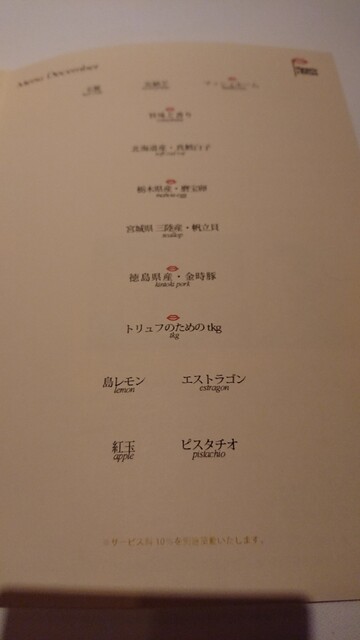 Menu December
北海道産・真鱈白子
栃木県産・磨宝卵
宮城県 三陸産・帆立貝
scallop
徳島県産・金時豚
kintoki pork
トリュフのための tkg
tkg
島レモン エストラゴン
lemon estragon
紅玉 ピスタチオ
apple pistachio
※サービス料 10%を別途頂戴いたします。